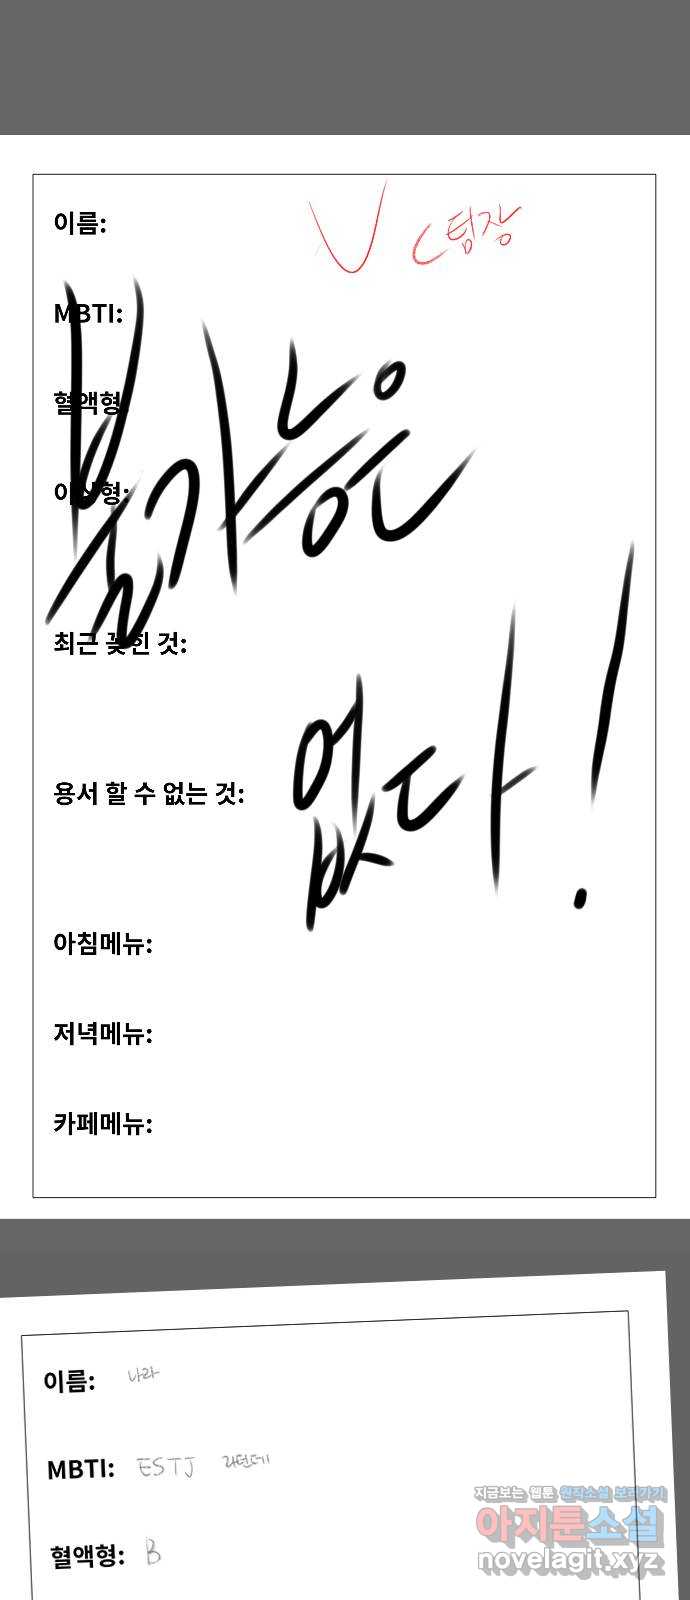 이름:
V (팀장
MBTI:
혈액형:
이상형:
불가능은
최근 꽂힌 것:
없다!
용서 할 수 없는 것:
아침메뉴:
저녁메뉴:
카페메뉴:
이름: 나라
MBTI: ESTJ 라던데
혈액형: B
지금보는 웹툰 원작소설 보러가기
아지툰소설
novelagit.xyz